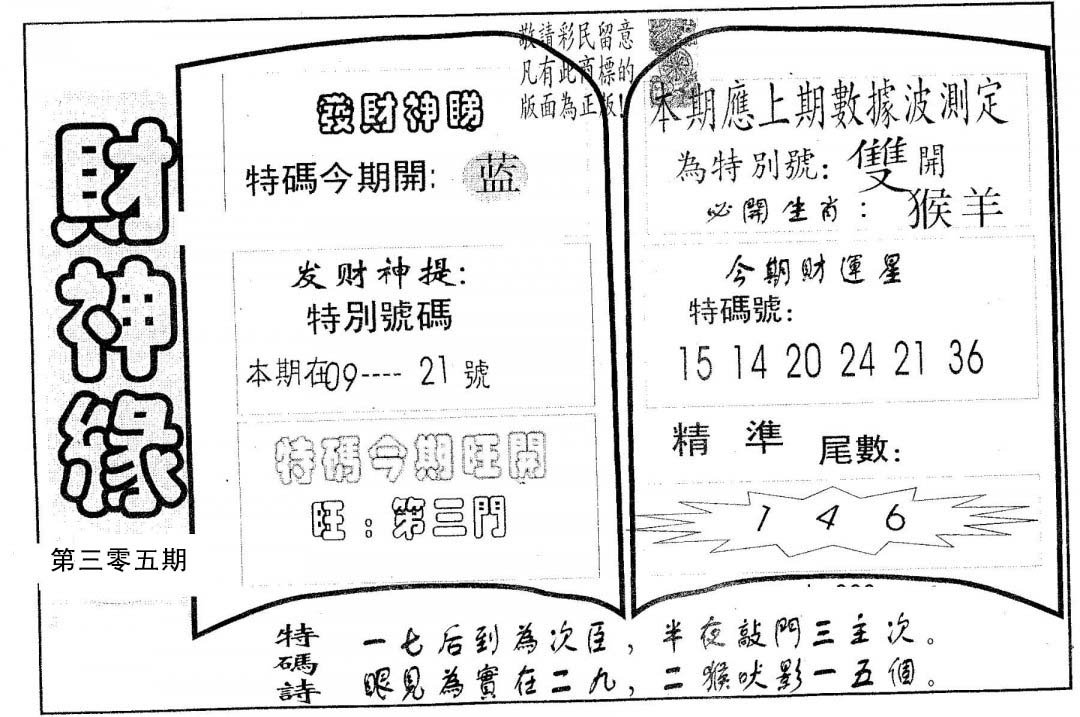 財神緣
第三零五期
敬請彩民留意
凡有此商標的
版面為正版!
發財神睇
特碼今期開: 蓝
发财神提:
特别號碼
本期在09---- 21 號
特碼今期旺開
旺:第三門
本期應上期數據波測定
為特別號: 雙開
必開生肖: 猴羊
今期財運星
特碼號:
15 14 20 24 21 36
精準 尾數:
1 4 6
特碼詩
一七后到為次臣,半夜敲門三主次。
眼見為實在二九,二猴吠影一五個。